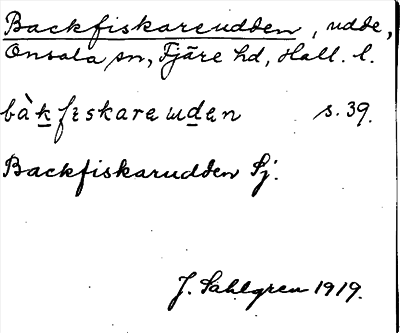 Backfiskareudden, udde,
Onsala sn, Fjäre hd, Hall. l.
bàkfiskareuden s. 39.
Backfiskarudden Sj.
J. Sahlgren 1919.